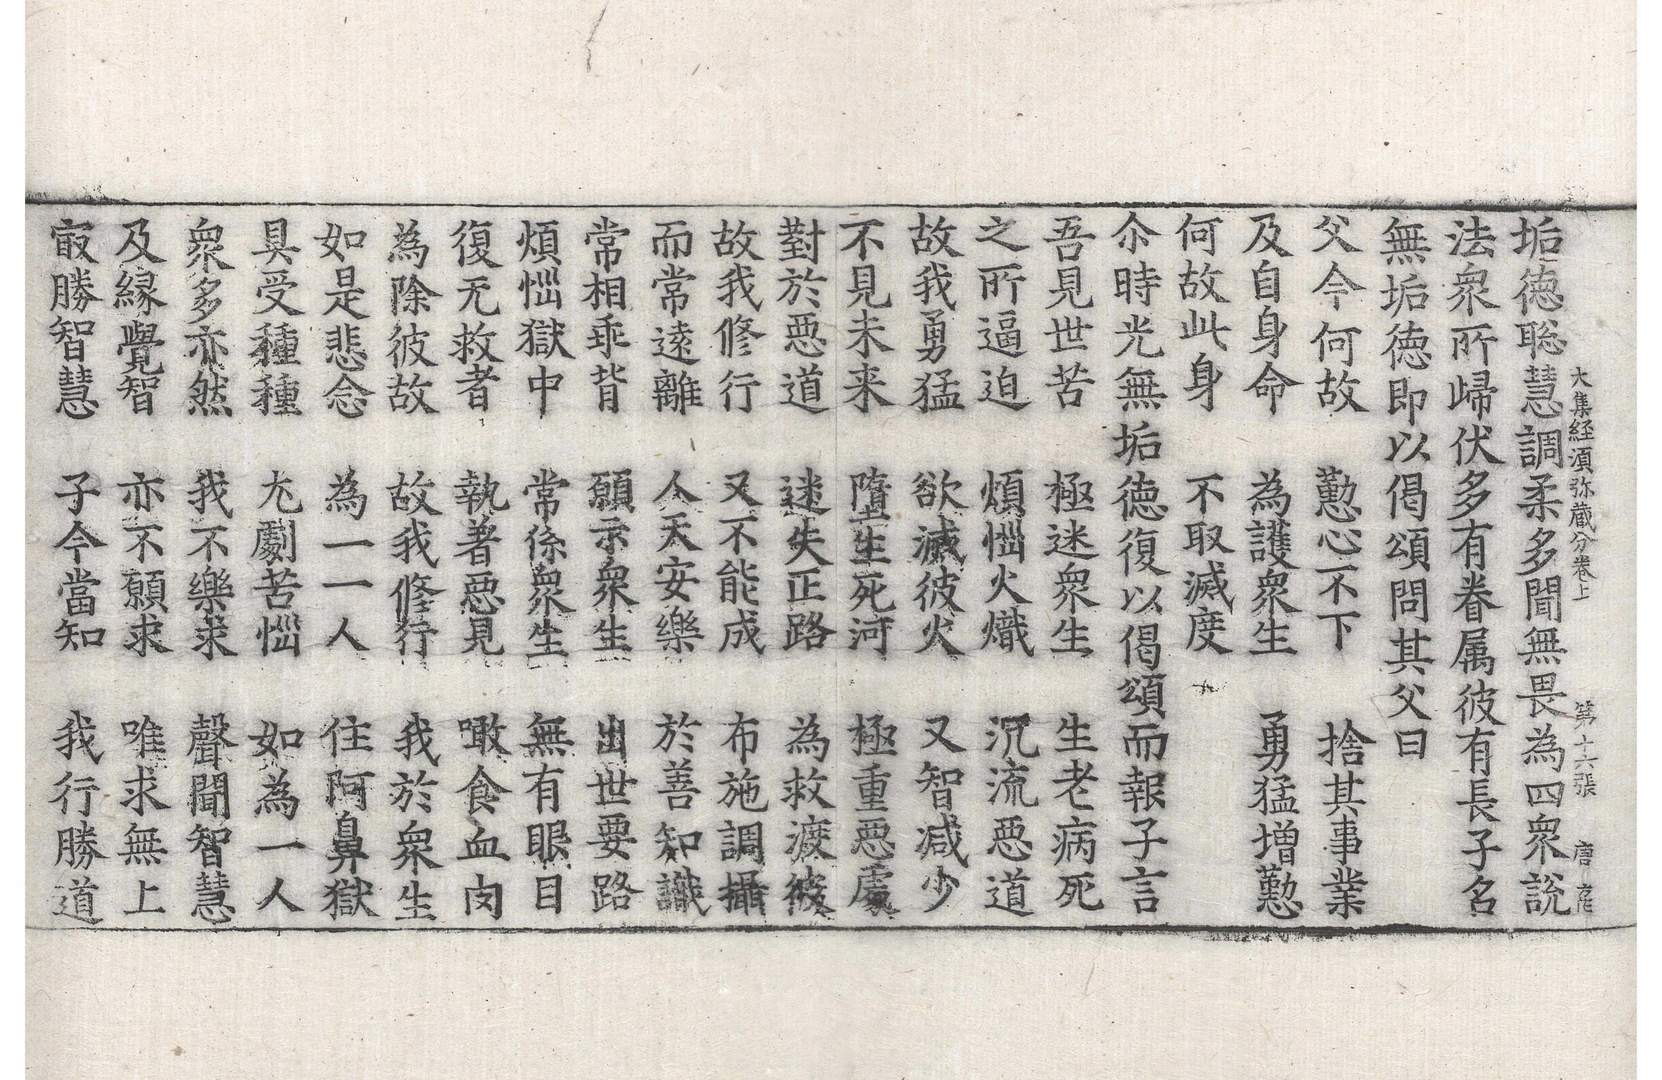 垢德聡慧調柔多聞無畏為四衆說
大集経須弥蔵分卷上 第十六張 唐
法衆所歸伏多有眷属彼有長子名
無垢德即以偈頌問其父曰
父今何故 懃心不下 捨其事業
及自身命 為護衆生 勇猛增懃
何故此身 不取滅度
尒時光無垢德復以偈頌而報子言
吾見世苦 極迷衆生 生老病死
之所逼迫 煩惱火熾 沉流惡道
故我勇猛 欲滅彼火 又智减少
不見未来 墮生死河 極重惡處
對於惡道 迷失正路 為救渡彼
故我修行 又不能成 布施調攝
而常遠離 人天安樂 於善知識
常相乖背 願示衆生 出世要路
煩惱獄中 常係衆生 無有眼目
復无救者 執著惡見 噉食血肉
為除彼故 故我修行 我於衆生
如是悲念 為一一人 住阿鼻獄
具受種種 尤劇苦惱 如為一人
衆多亦然 我不樂求 聲聞智慧
及緣覺智 亦不願求 唯求無上
㝡勝智慧 子今當知 我行勝道